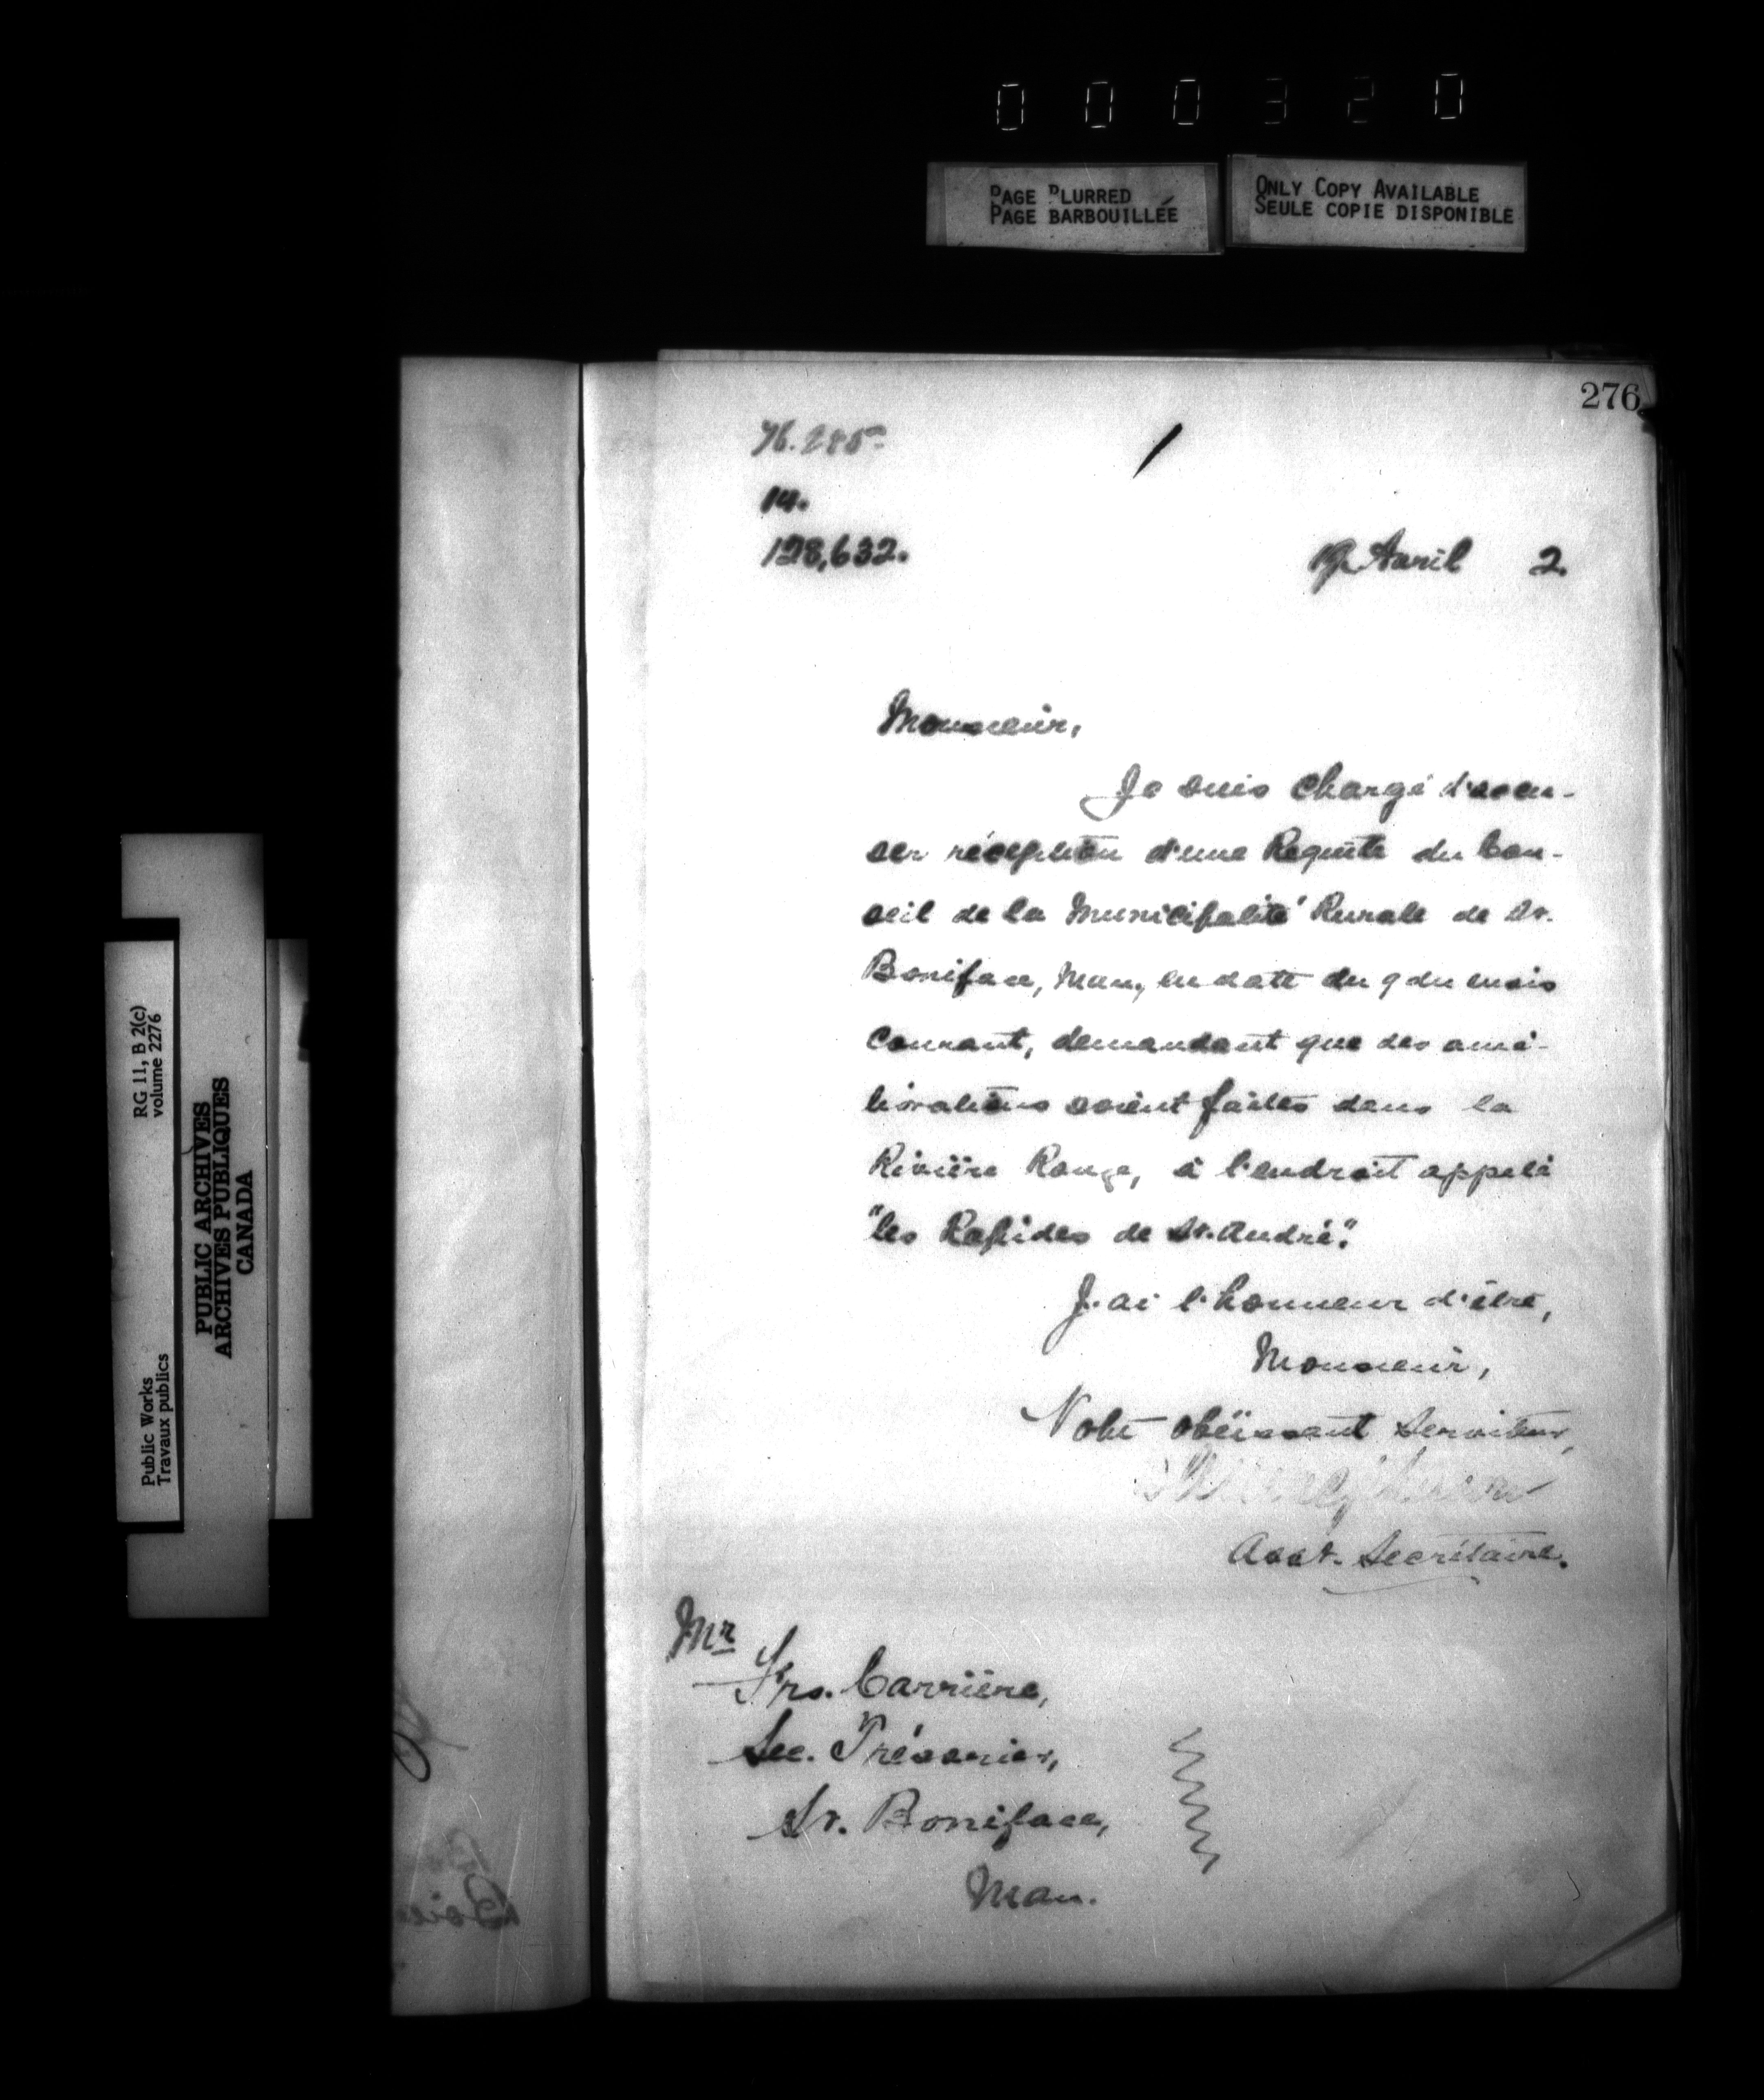 000320
PAGE BLURRED
PAGE BARBOUILLÉE
ONLY COPY AVAILABLE
SEULE COPIE DISPONIBLE
276
14.
128,632.
Avril 2.
Monsieur,
Je suis chargé d'accu-
ser réception d'une Requête du Con-
seil de la Municipalité Rurale de St.
Boniface, Man., en date du 9 du mois
courant, demandant que des amé-
liorations soient faites dans la
Rivière Rouge, à l'endroit appelé
"les Rapides de St. André".
J'ai l'honneur d'être,
Monsieur,
Votre obéissant Serviteur,
Asst. Secrétaire.
Mr
Frs. Carrière,
Sec. Trésorier,
St. Boniface,
Man.
RG 11, B 2(c)
volume 2276
PUBLIC ARCHIVES
ARCHIVES PUBLIQUES
CANADA
Public Works
Travaux publics